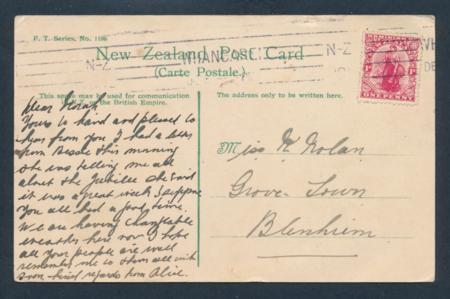 F. T. Series, No. 1186
New Zealand Post Card
(Carte Postale.)
WHANGAREI
N-Z
N-Z
ONE PENNY
This space may be used for communication
of the British Empire.
The address only to be written here.
Dear Norah
Yours to hand and pleased to
hear from you I had a letter
from Bessie this morning
she was telling me all
about the Jubilee she said
it was a great week I suppose
you all had a good time.
We are having changable
weather here now I hope
all your people are well
remember me to them all with
kind regards from Alice.
Miss N Nolan
Grove Town
Blenheim